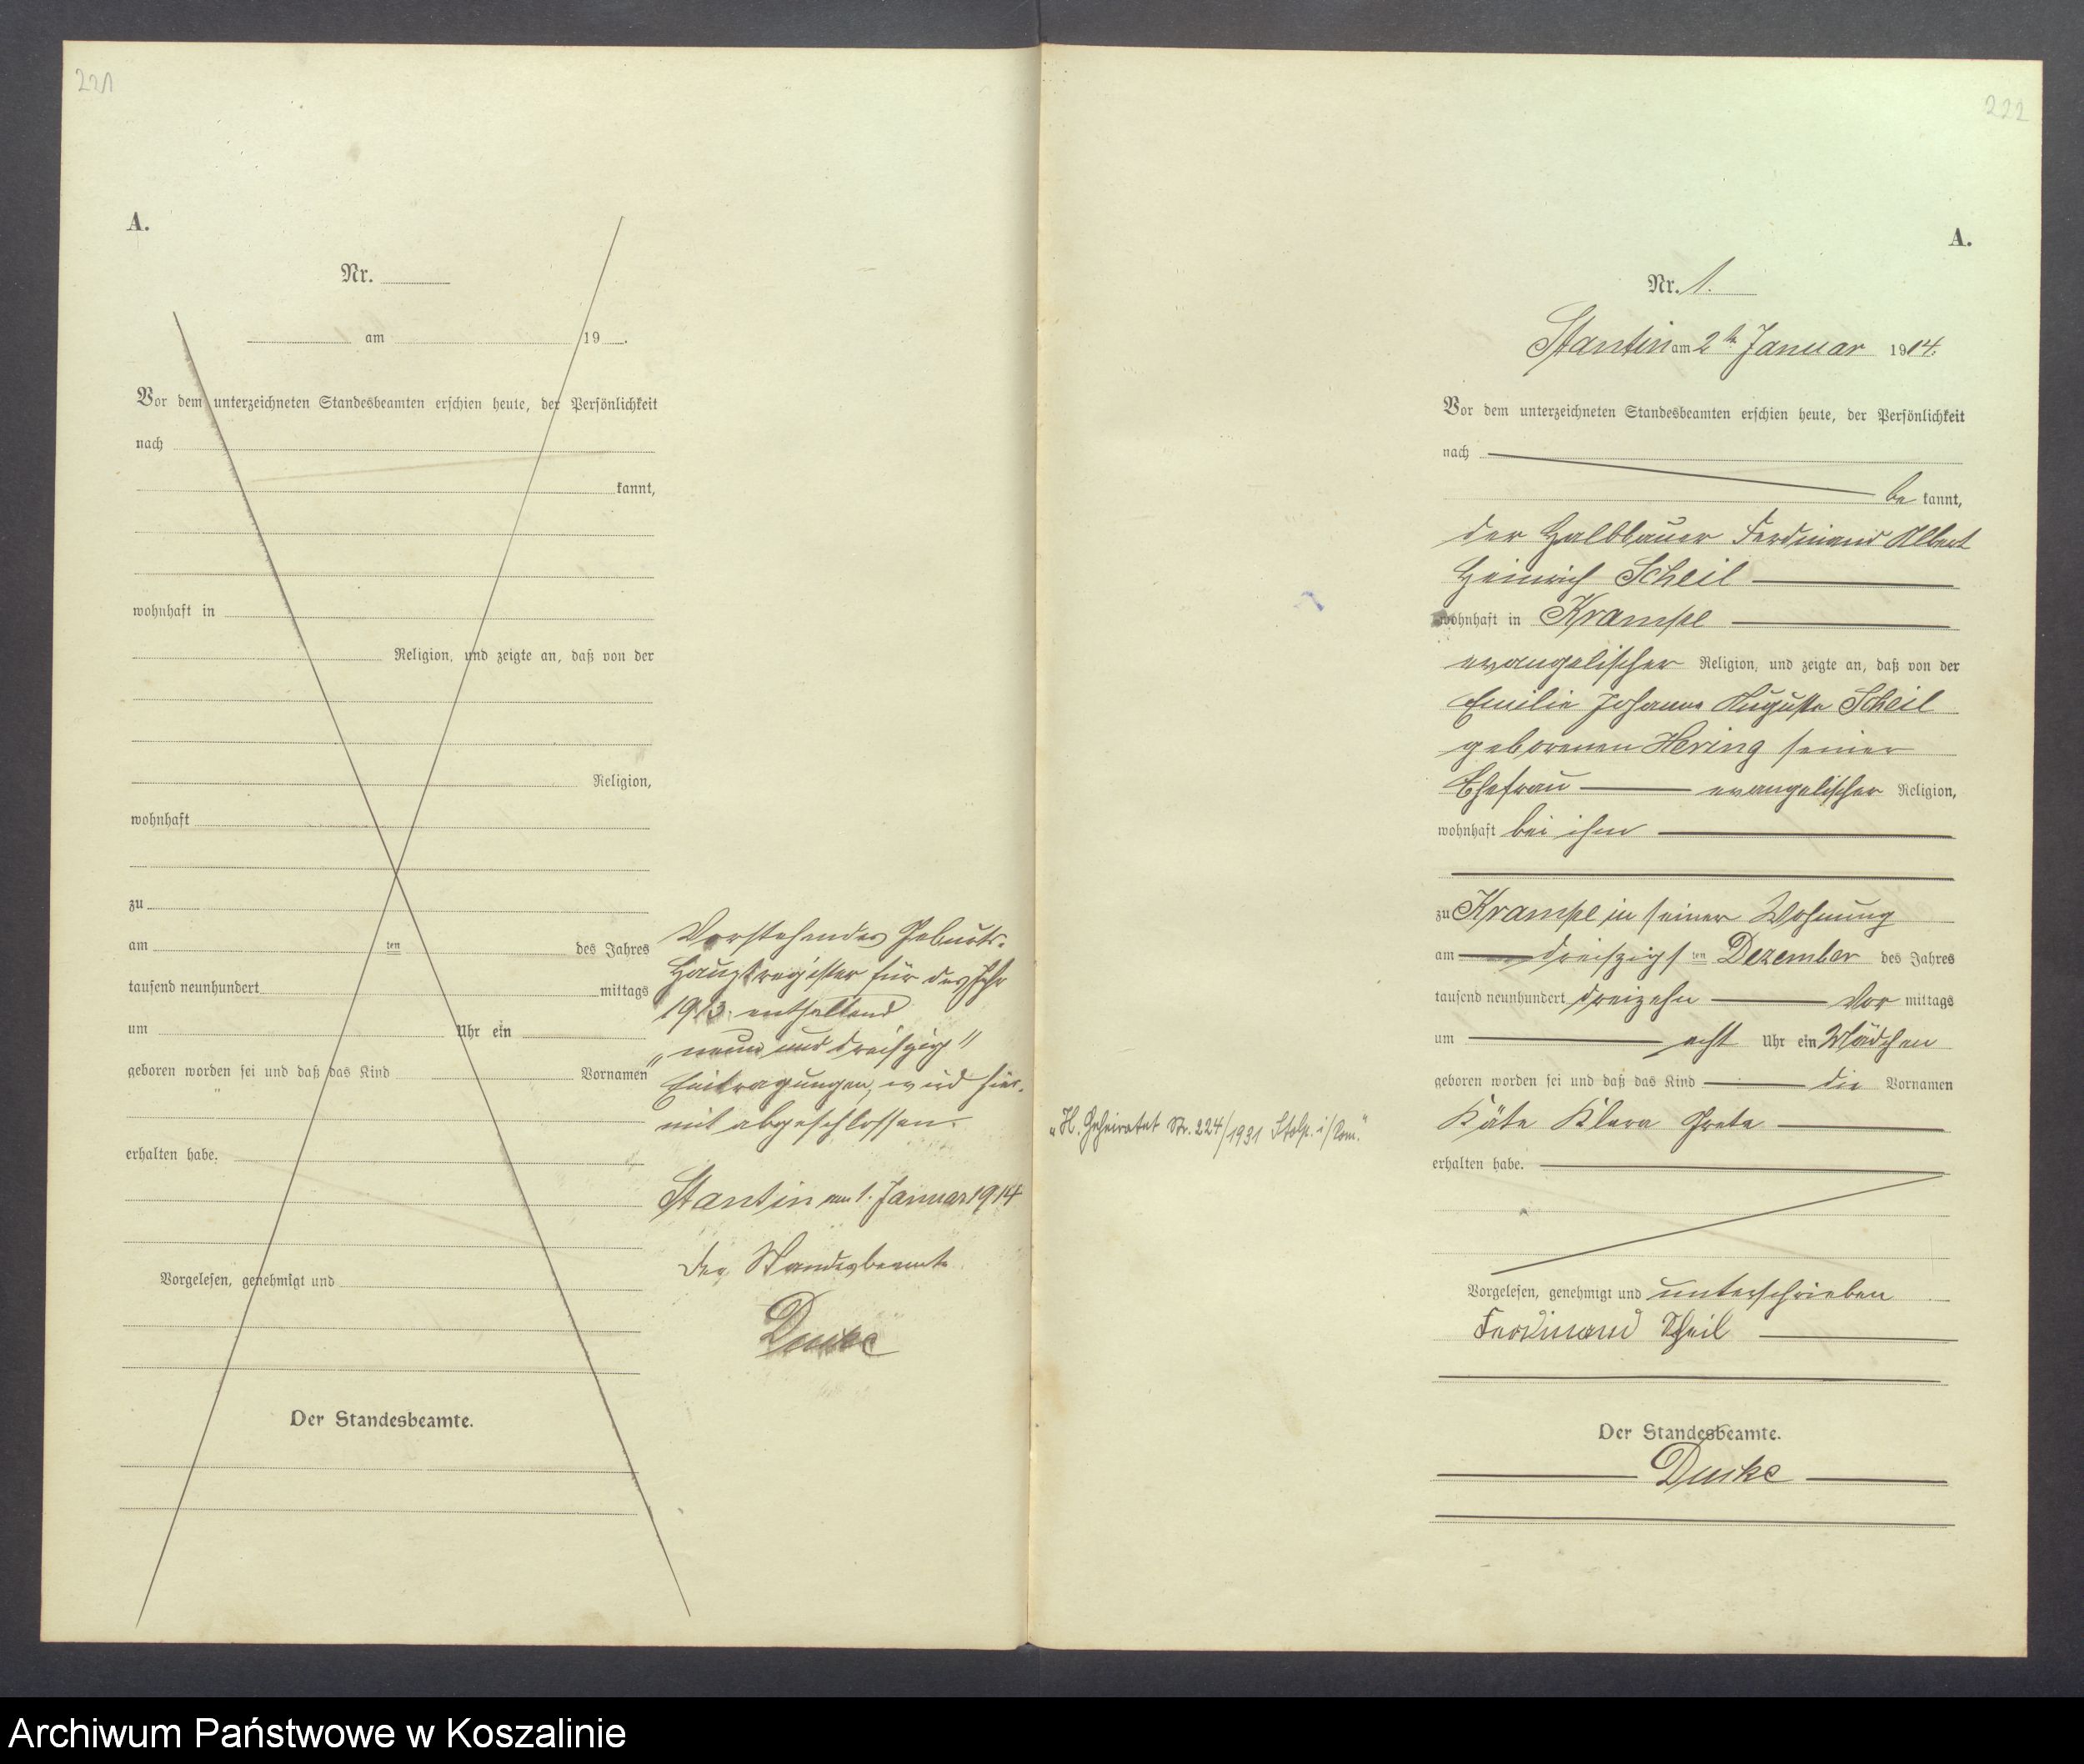 221
A.
Nr.
am 19 .
Vor dem unterzeichneten Standesbeamten erschien heute, der Persönlichkeit
nach
kannt,
wohnhaft in
Religion, und zeigte an, daß von der
Religion,
wohnhaft
zu
am ten des Jahres
tausend neunhundert mittags
um Uhr ein
geboren worden sei und daß das Kind Vornamen
erhalten habe.
Vorgelesen, genehmigt und
Der Standesbeamte.
Vorstehendes Geburts-
Hauptregister für das Jahr
1913. enthaltend
"neun und dreiszig"
Eintragungen, wird hier-
mit abgeschlossen.
Stantin am 1. Januar 1914
Der Standesbeamte
222
A.
Nr. 1.
Stantin am 2ten Januar 1914.
Vor dem unterzeichneten Standesbeamten erschien heute, der Persönlichkeit
nach
be kannt,
der Halbbauer Ferdinand Albert
Heinrich Scheil
wohnhaft in Krampe
evangelischer Religion, und zeigte an, daß von der
Emilie Johanne Auguste Scheil
geborenen Hering seiner
Ehefrau evangelischer Religion,
wohnhaft bei ihm
zu Krampe in seiner Wohnung
am dreiszigsten Dezember des Jahres
tausend neunhundert dreizehn Vor mittags
um acht Uhr ein Mädchen
geboren worden sei und daß das Kind die Vornamen
Käte Klara Grete
erhalten habe.
"H. Geheiratet Nr. 224/1931 Stolp i/Pom."
Vorgelesen, genehmigt und unterschrieben
Ferdinand Scheil
Der Standesbeamte.
Archiwum Państwowe w Koszalinie